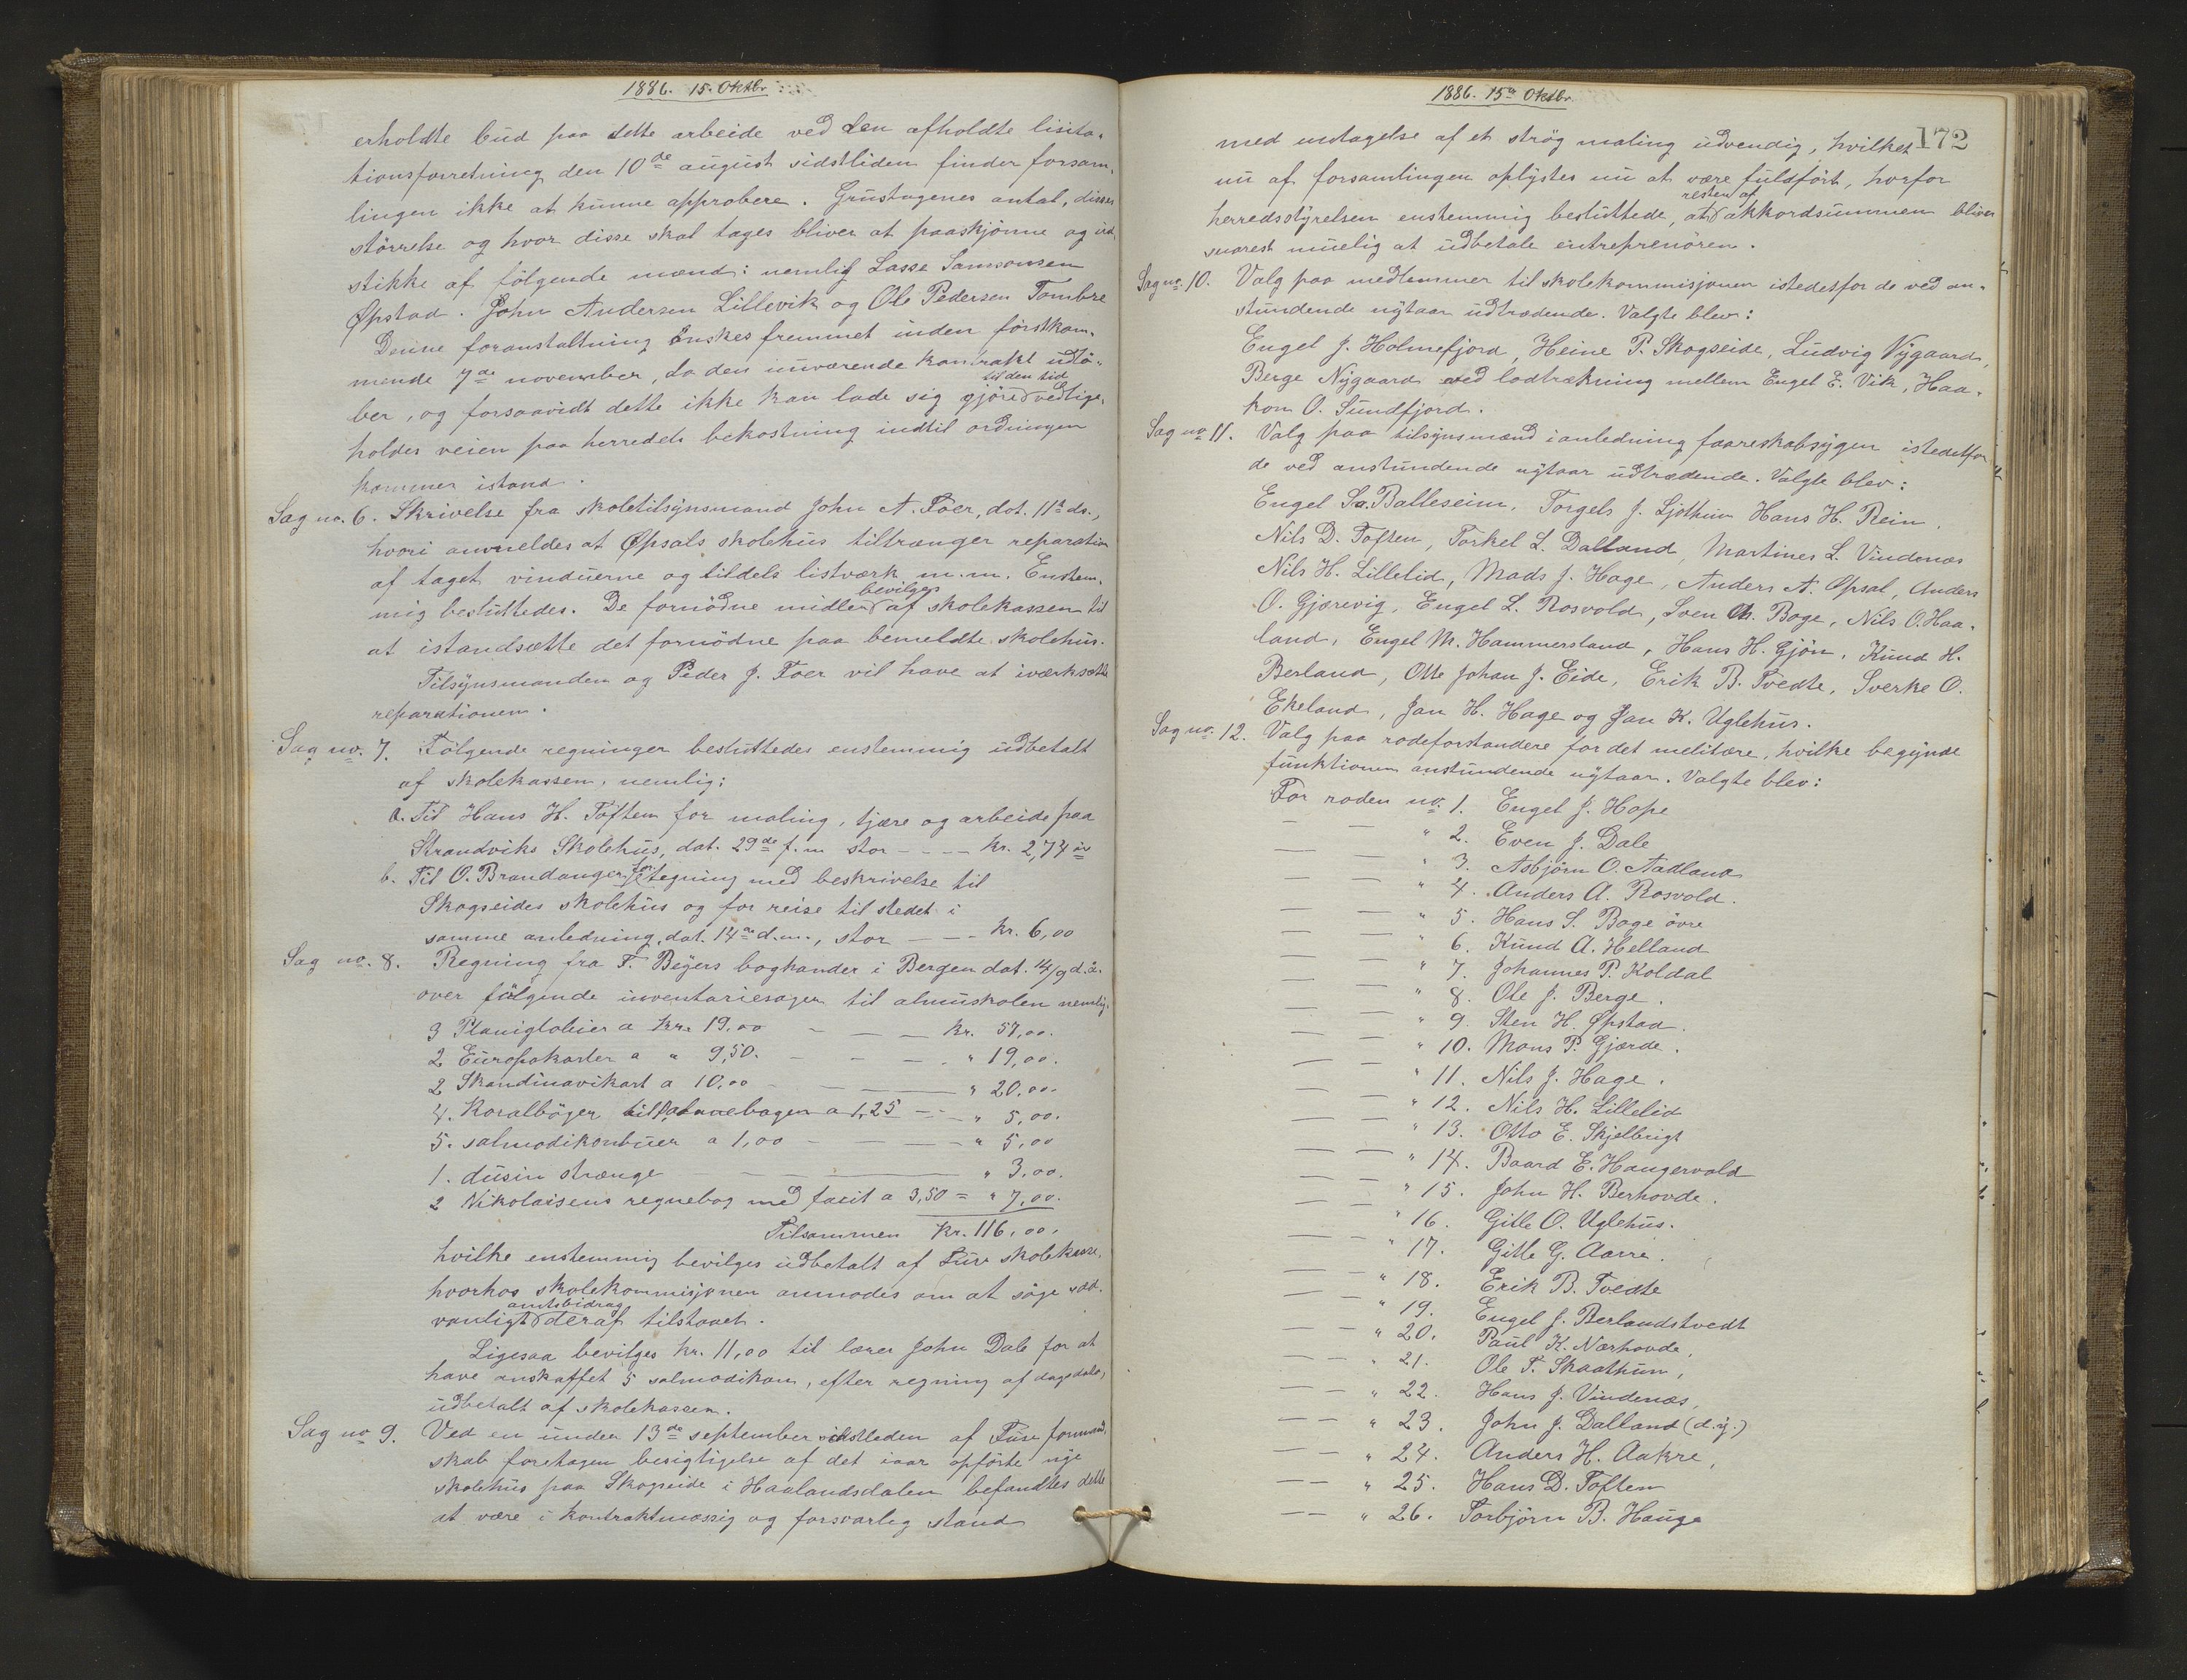 1886. 15. Oktbr.
erholdte bud paa dette arbeide ved den afholdte lisita-
tionsforretning den 10de august sidstliden finder forsam-
lingen ikke at kunne approbere. Grustagenes antal, disses
störrelse og hvor disse skal tages bliver at paaskjönne og ud-
stikke af fölgende mænd: nemlig Lasse Samsonsen
Øpstad. John Andersen Lillevik og Ole Pedersen Tombre
Denne foranstaltning önskes fremmet inden förstkom-
mende 7de november, da den nuværende kontrakt udlö-
ber, og forsaavidt dette ikke kan lade sig gjöre til den tid vedlige-
holdes veien paa herredets bekostning indtil ordningen
kommer istand.
Sag no. 6. Skrivelse fra skoletilsynsmand John A. Foer, dat. 11te ds.,
hvori anmeldes at Øpsals skolehus tiltrænger reparation
af taget vinduerne og tildels listværk m.m. Enstem-
mig besluttedes. De fornödne midler bevilges af skolekassen til
at istandsætte det fornödne paa bemeldte skolehus.
Tilsynsmanden og Peder J. Foer vil have at iværksætte
reparationen.
Sag no. 7. Fölgende regninger besluttedes enstemmig udbetalt
af skolekassen, nemlig:
a. Til Hans H. Toften for maling, tjære og arbeide paa
Strandviks Skolehus, dat. 29de f.m. stor - - - - kr. 2,74 ör
b. Til O. Brandanger for tegning med beskrivelse til
Skogseides skolehus og for reise til stedet i
samme anledning, dat. 14de d.m., stor — — - kr. 6,00
Sag no. 8. Regning fra F. Beyers boghander i Bergen dat. 14/9 d.a.
over fölgende inventariesager til almuskolen nemlig:
3 Planiglobier a kr. 19,00 - — — kr. 57,00.
2 Europakarter a " 9,50. - - — - " 19,00.
2 Skandinavikart a 10,00 - — —— " 20,00.
4. Koralböger til salmebogen a 1,25 — - — " 5,00.
5. salmodikonbuer a 1,00 - — — — " 5,00
1. dusin strænge - —— " 3,00.
2 Nikolaisens regnebog med facit a 3,50 = " 7,00.
Tilsammen kr. 116,00.
hvilke enstemmig bevilges udbetalt af Fuse skolekasse,
hvorhos skolekommisjonen anmodes om at söge sæd-
vanligt amtsbidrag deraf tilstaaet.
Ligesaa bevilges kr. 11,00 til lærer John Dale for at
have anskaffet 5 salmodikon, efter regning af dagsdato,
udbetalt af skolekassen.
Sag no 9. Ved en under 13de september sidstleden af Fuse formand-
skab foretagen besigtigelse af det iaar opförte nye
skolehus paa Skogseide i Haalandsdalen befandtes dette
at være i kontraktmæssig og forsvarlig stand
1886. 15de Oktbr.
172
med undtagelse af et strög maling udvendig, hvilket
nu af forsamlingen oplystes nu at være fuldfört, hvorfor
herredsstyrelsen enstemmig besluttede, at resten af akkordsummen bliver
snarest muelig at udbetale entreprenören.
Sag no. 10. Valg paa medlemmer til skolekommisjonen istedetfor de ved an-
stundende nytaar udtrædende. Valgte blev:
Engel J. Holmefjord, Heine P. Skogseide, Ludvig Nygaard,
Berge Nygaard ved lodtrækning mellem Engel E. Vik, Haa-
kon O. Sundfjord.
Sag no 11. Valg paa tilsynsmænd i anledning faareskabsygen istedetfor
de ved anstundende nytaar udtrædende. Valgte blev:
Engel Sa. Balleseim, Torgels J. Ljothun Hans H. Rein,
Nils D. Toften, Torkel L. Dalland, Martines L. Vindenæs
Nils H. Lillelid, Mads J. Hage, Anders A. Øpsal, Anders
O. Gjærevig, Engel L. Rosvold, Sven M. Boge, Nils O. Haa-
land, Engel M. Hammersland, Hans H. Gjön, Knud H.
Berland, Otte Johan J. Eide, Erik B. Tvedte, Sverke O.
Ekeland, Jan H. Hage og Jan K. Uglehus.
Sag no. 12. Valg paa rodeforstandere for det melitære, hvilke begynde
funktionen anstundende nytaar. Valgte blev:
For roden no. 1. Engel J. Hope
— — " 2. Even J. Dale
— — " 3. Asbjörn O. Aadland
— — " 4. Anders A. Rosvold.
— — " 5. Hans S. Boge övre
— — " 6. Knud A. Helland
— — " 7. Johannes P. Koldal
— — " 8. Ole J. Berge.
— — " 9. Sten H. Øpstad.
— — " 10. Mons P. Gjærde.
— — " 11. Nils J. Hage.
— — " 12. Nils H. Lillelid
— — " 13. Otto E. Skjelbrigt
— — " 14. Baard E. Haugervold
— — " 15. John H. Berhovde.
— — " 16. Gitle O. Uglehus.
— — " 17. Gitle G. Aarre.
— — " 18. Erik B. Tvedte
— — " 19. Engel J. Berlandstvedt
— — " 20. Paul K. Nærhovde,
— — " 21. Ole T. Skaathun,
— — " 22. Hans J. Vindenæs,
— — " 23. John J. Dalland (d.y.)
— — " 24. Anders H. Aakre,
— — " 25. Hans D. Toften
— — " 26. Torbjörn B. Hauge